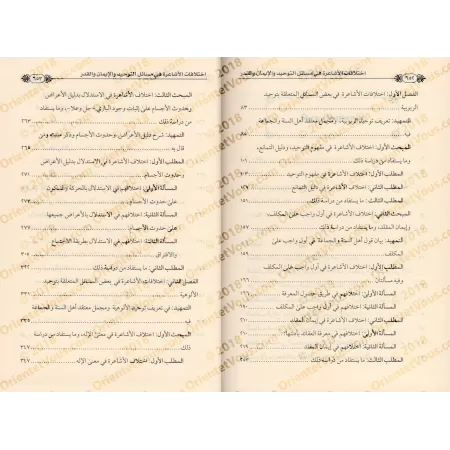 اختلافات الأشاعرة في مسائل التوحيد والإيمان والقدر
الفصل الأول: اختلافات الأشاعرة في بعض المسائل المتعلقة بتوحيد
الربوبية ٨٣
التمهيد: تعريف توحيد الربوبية، ومجمل معتقد أهل السنة والجماعة
فيه
المبحث الأول: اختلاف الأشاعرة في مفهوم التوحيد ودليل التمانع،
وما يستفاد من دراسة ذلك ١٠١
المطلب الأول: اختلاف الأشاعرة في مفهوم التوحيد
المطلب الثاني: اختلاف الأشاعرة في دليل التمانع
المطلب الثالث: ما يستفاد من دراسة ذلك ١٥١
المبحث الثاني: اختلاف الأشاعرة في أول واجب على المكلف،
وإيمان المقلد، وما يستفاد من دراسة ذلك ١٥٧
التمهيد: بيان قول أهل السنة والجماعة في أول واجب على
المكلف ١٥٩
المطلب الأول: اختلاف الأشاعرة في أول واجب على المكلف
وفيه مسألتان
المسألة الأولى: اختلافهم في طريق حصول المعرفة ١٩٠
المطلب الثاني: اختلاف الأشاعرة في إيمان المقلد ٢١٠
المسألة الأولى: اختلافهم في معرفة العقائد بأدلتها
المسألة الثانية: اختلافهم في إيمان المقلد
المطلب الثالث: ما يستفاد من دراسة ذلك
اختلافات الأشاعرة في مسائل التوحيد والإيمان والقدر
٩٥٣
المبحث الثالث: اختلاف الأشاعرة في الاستدلال بدليل الأعراض
وحدوث الأجسام على إثبات وجود الباري - جل وعلا-، وما يستفاد
من دراسة ذلك ٢٦٣
التمهيد: شرح دليل الأعراض وحدوث الأجسام وذكر منشئه ومن
قال به ٢٦٥
المطلب الأول: اختلاف الأشاعرة في الاستدلال بدليل الأعراض
وحدوث الأجسام
المسألة الأولى: اختلافهم في الاستدلال بالحركة والسكون
على حدوث الأجسام ٢٧١
المسألة الثانية: اختلافهم في الاستدلال بالأعراض جميعها
على حدوث الأجسام ٢٧٧
المسألة الثالثة: اختلافهم في الاستدلال بطريقة الاجتماع
والافتراق
المطلب الثاني: ما يستفاد من دراسة ذلك
الفصل الثاني: اختلافات الأشاعرة في بعض المسائل المتعلقة بتوحيد
الألوهية ٣٣١
التمهيد: في تعريف توحيد الألوهية ومجمل معتقد أهل السنة والجماعة
فيه
المبحث الأول: اختلاف الأشاعرة في معنى الإله، وما يستفاد من دراسة
ذلك ٣٤٧
المطلب الأول: اختلاف الأشاعرة في معنى الإله
OrientetVous.com 2018